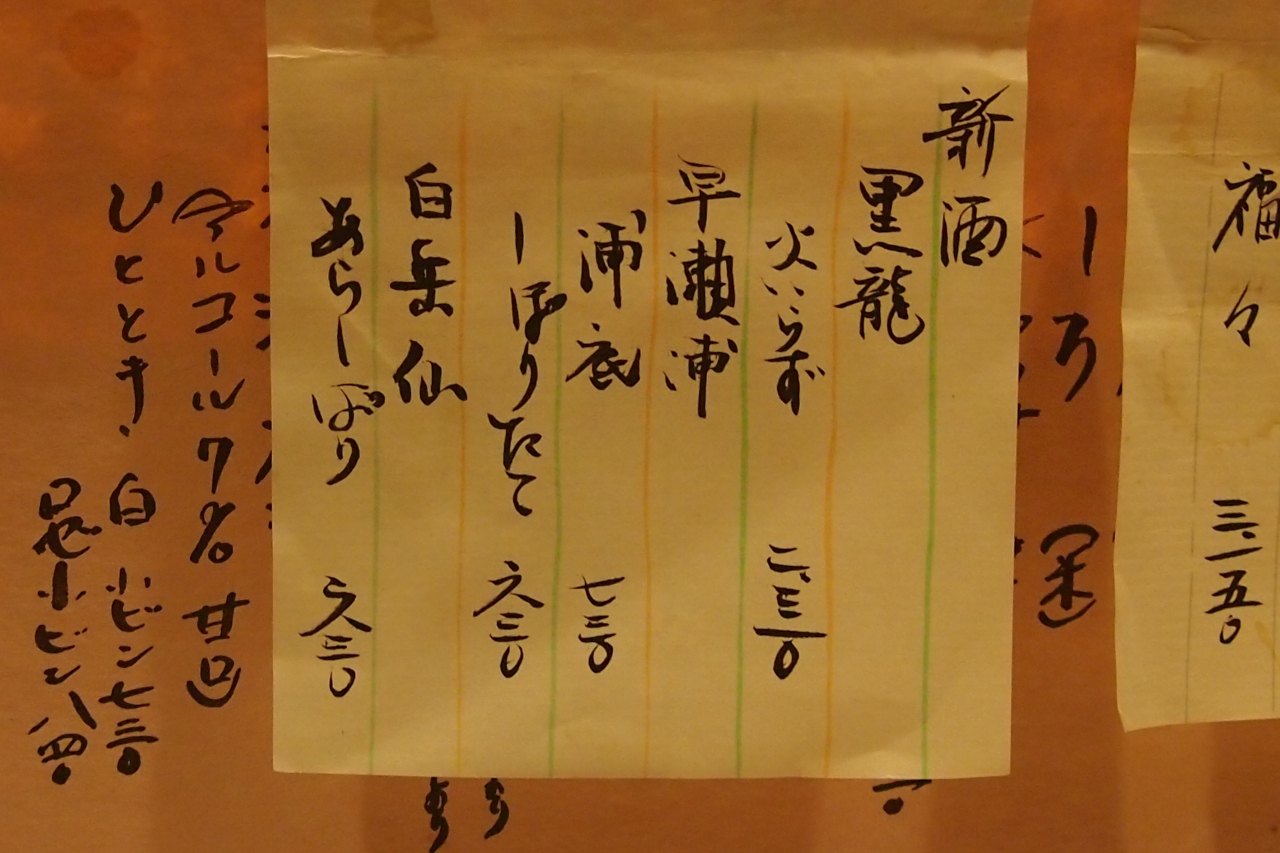 福々 三、一五〇
しろ
(米)
新酒
黒龍
火いらず 二、三一〇
早瀬浦
浦底 七三〇
しぼりたて 六三〇
白岳仙
あらしぼり 六三〇
(アルコール7% 甘口)
ひととき 白 小ビン 七三〇
ロゼ 小ビン 八四〇